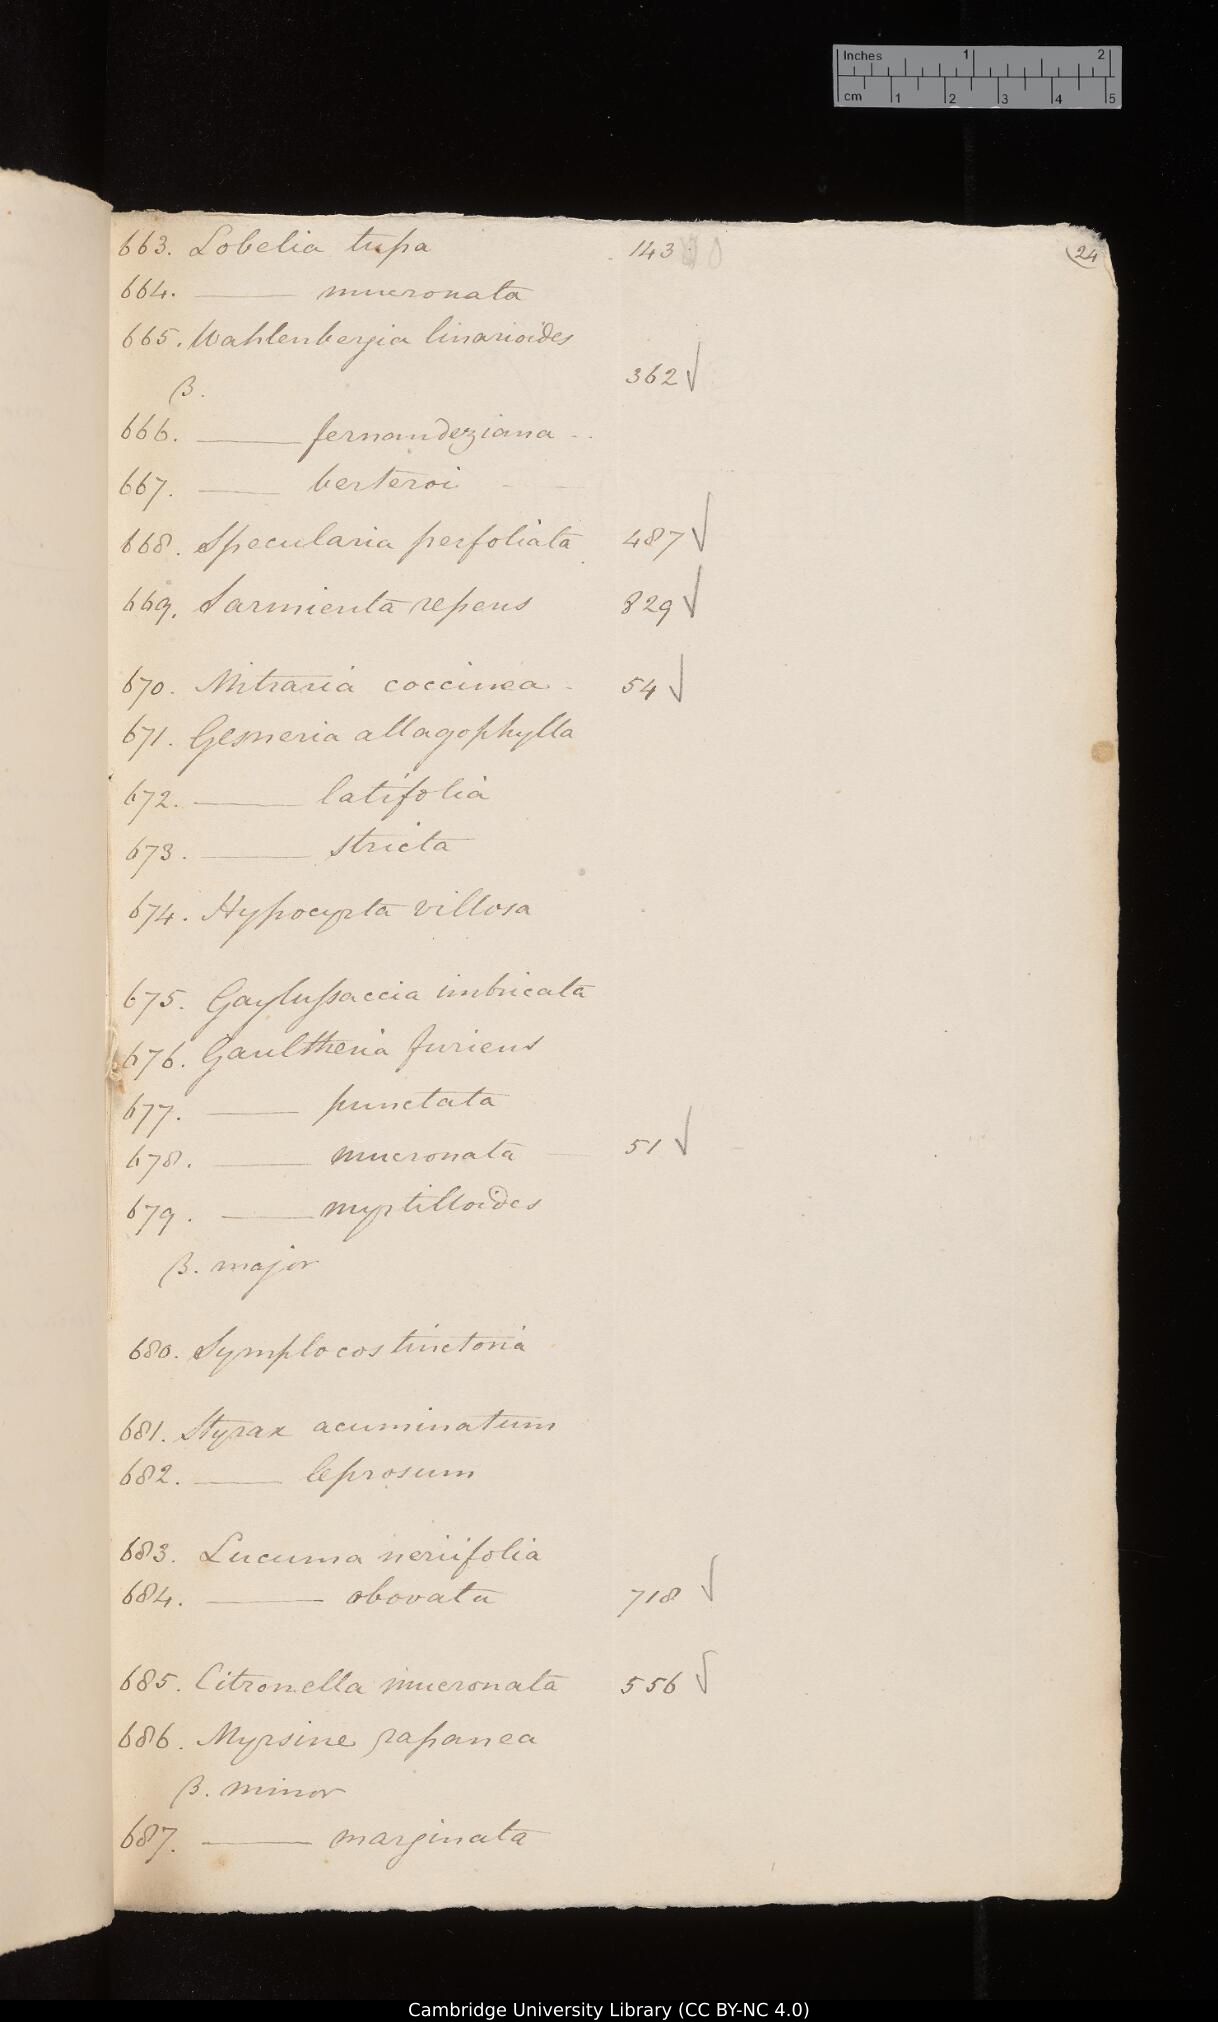 Inches 1 2
cm 1 2 3 4 5
24
663. Lobelia tupa 143
664. —— mucronata
665. Wahlenbergia linarioides
β. 362 √
666. —— fernandeziana - .
667. —— berteroi - -
668. Specularia perfoliata 487 √
669. Sarmienta repens 829 √
670. Mitraria coccinea - 54 √
671. Gesneria allagophylla
672. —— latifolia
673. —— stricta
674. Hypocyrta villosa
675. Gaylussaccia imbricata
676. Gaultheria furiens
677. —— punctata
678. —— mucronata — 51 √
679. —— myrtilloides
β. major
680. Symplocos tinctoria
681. Styrax acuminatum
682. —— leprosum
683. Lucuma neriifolia
684. —— obovata 718 √
685. Citronella mucronata 556 √
686. Myrsine rapanea
β. minor
687. —— marginata
Cambridge University Library (CC BY-NC 4.0)